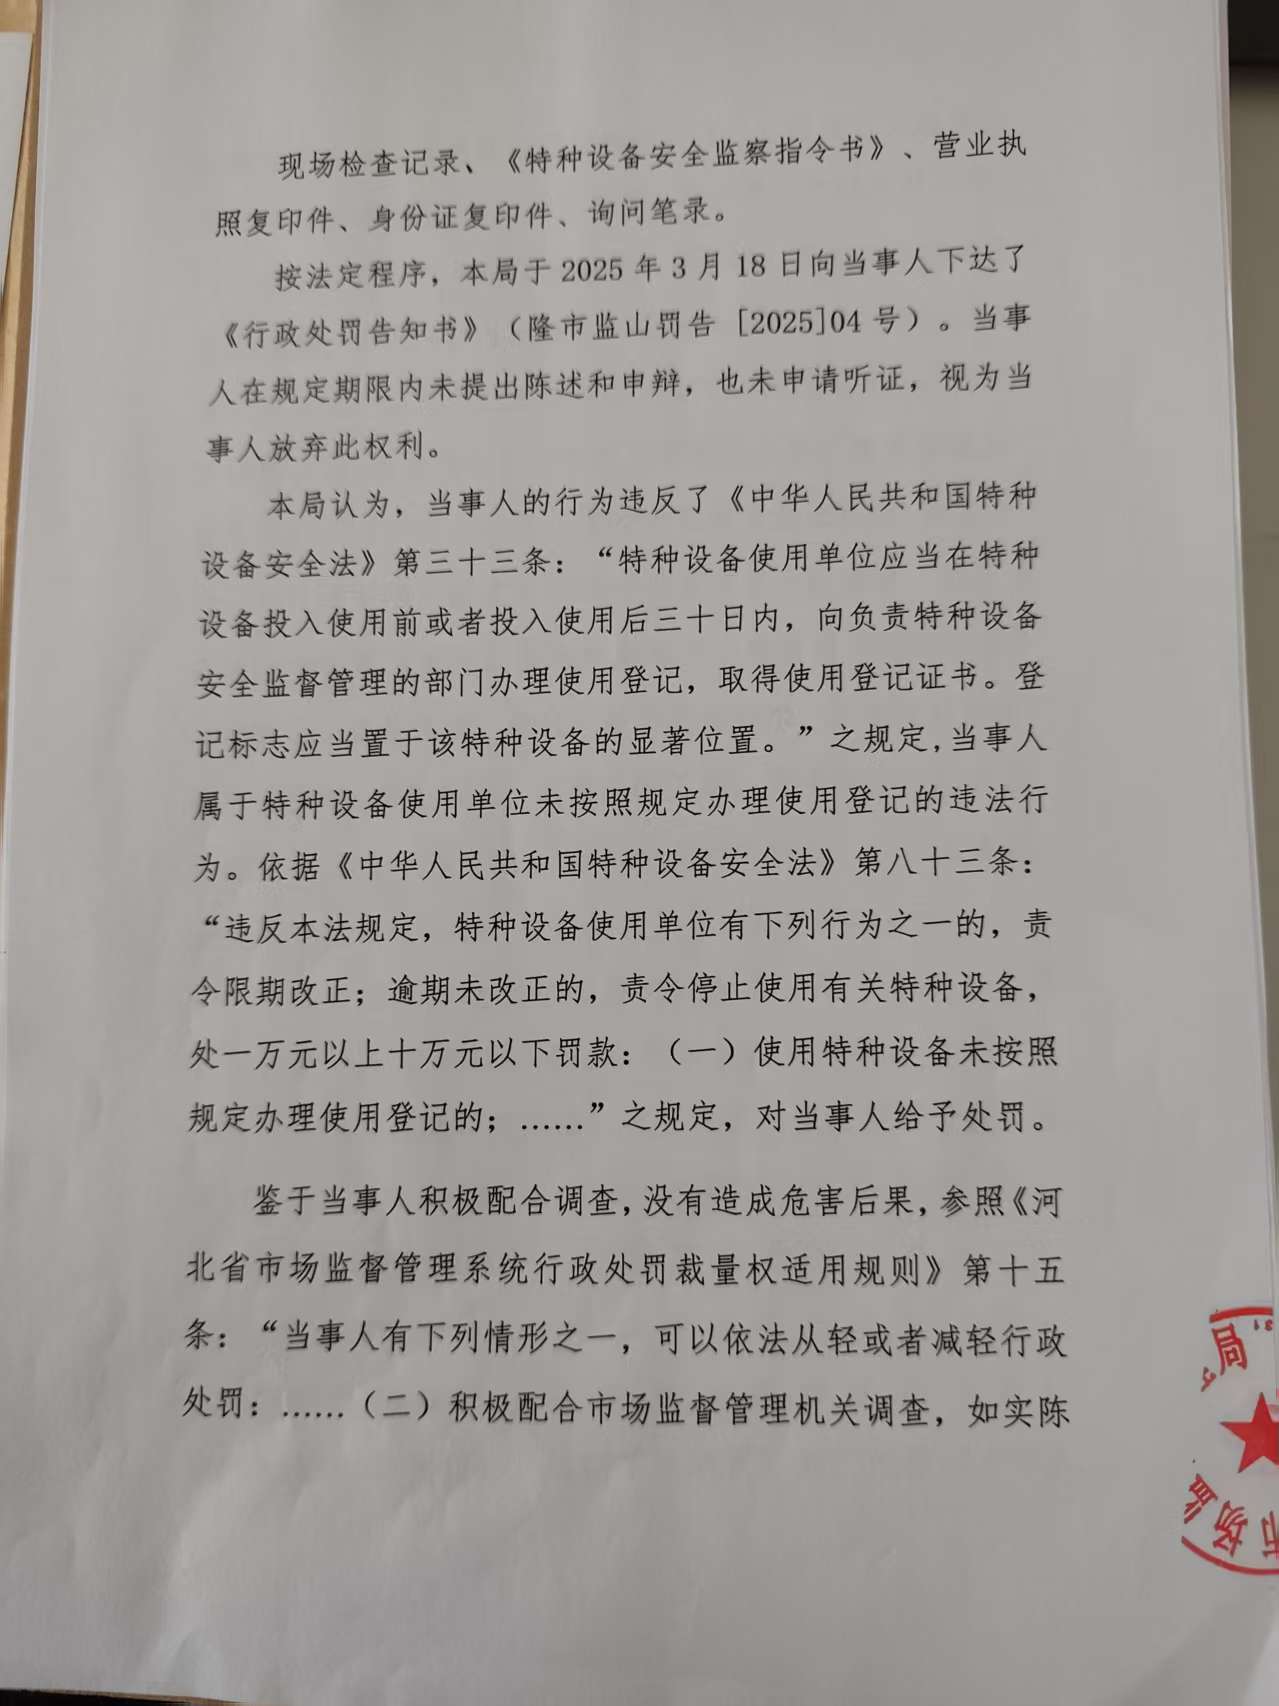 现场检查记录、《特种设备安全监察指令书》、营业执
照复印件、身份证复印件、询问笔录。
按法定程序，本局于 2025 年 3 月 18 日向当事人下达了
《行政处罚告知书》（隆市监山罚告［2025]04 号）。当事
人在规定期限内未提出陈述和申辩，也未申请听证，视为当
事人放弃此权利。
本局认为，当事人的行为违反了《中华人民共和国特种
设备安全法》第三十三条：“特种设备使用单位应当在特种
设备投入使用前或者投入使用后三十日内，向负责特种设备
安全监督管理的部门办理使用登记，取得使用登记证书。登
记标志应当置于该特种设备的显著位置。”之规定,当事人
属于特种设备使用单位未按照规定办理使用登记的违法行
为。依据《中华人民共和国特种设备安全法》第八十三条：
“违反本法规定，特种设备使用单位有下列行为之一的，责
令限期改正；逾期未改正的，责令停止使用有关特种设备，
处一万元以上十万元以下罚款：（一）使用特种设备未按照
规定办理使用登记的；……”之规定，对当事人给予处罚。
鉴于当事人积极配合调查,没有造成危害后果,参照《河
北省市场监督管理系统行政处罚裁量权适用规则》第十五
条：“当事人有下列情形之一，可以依法从轻或者减轻行政
处罚：……（二）积极配合市场监督管理机关调查，如实陈
局
市场监